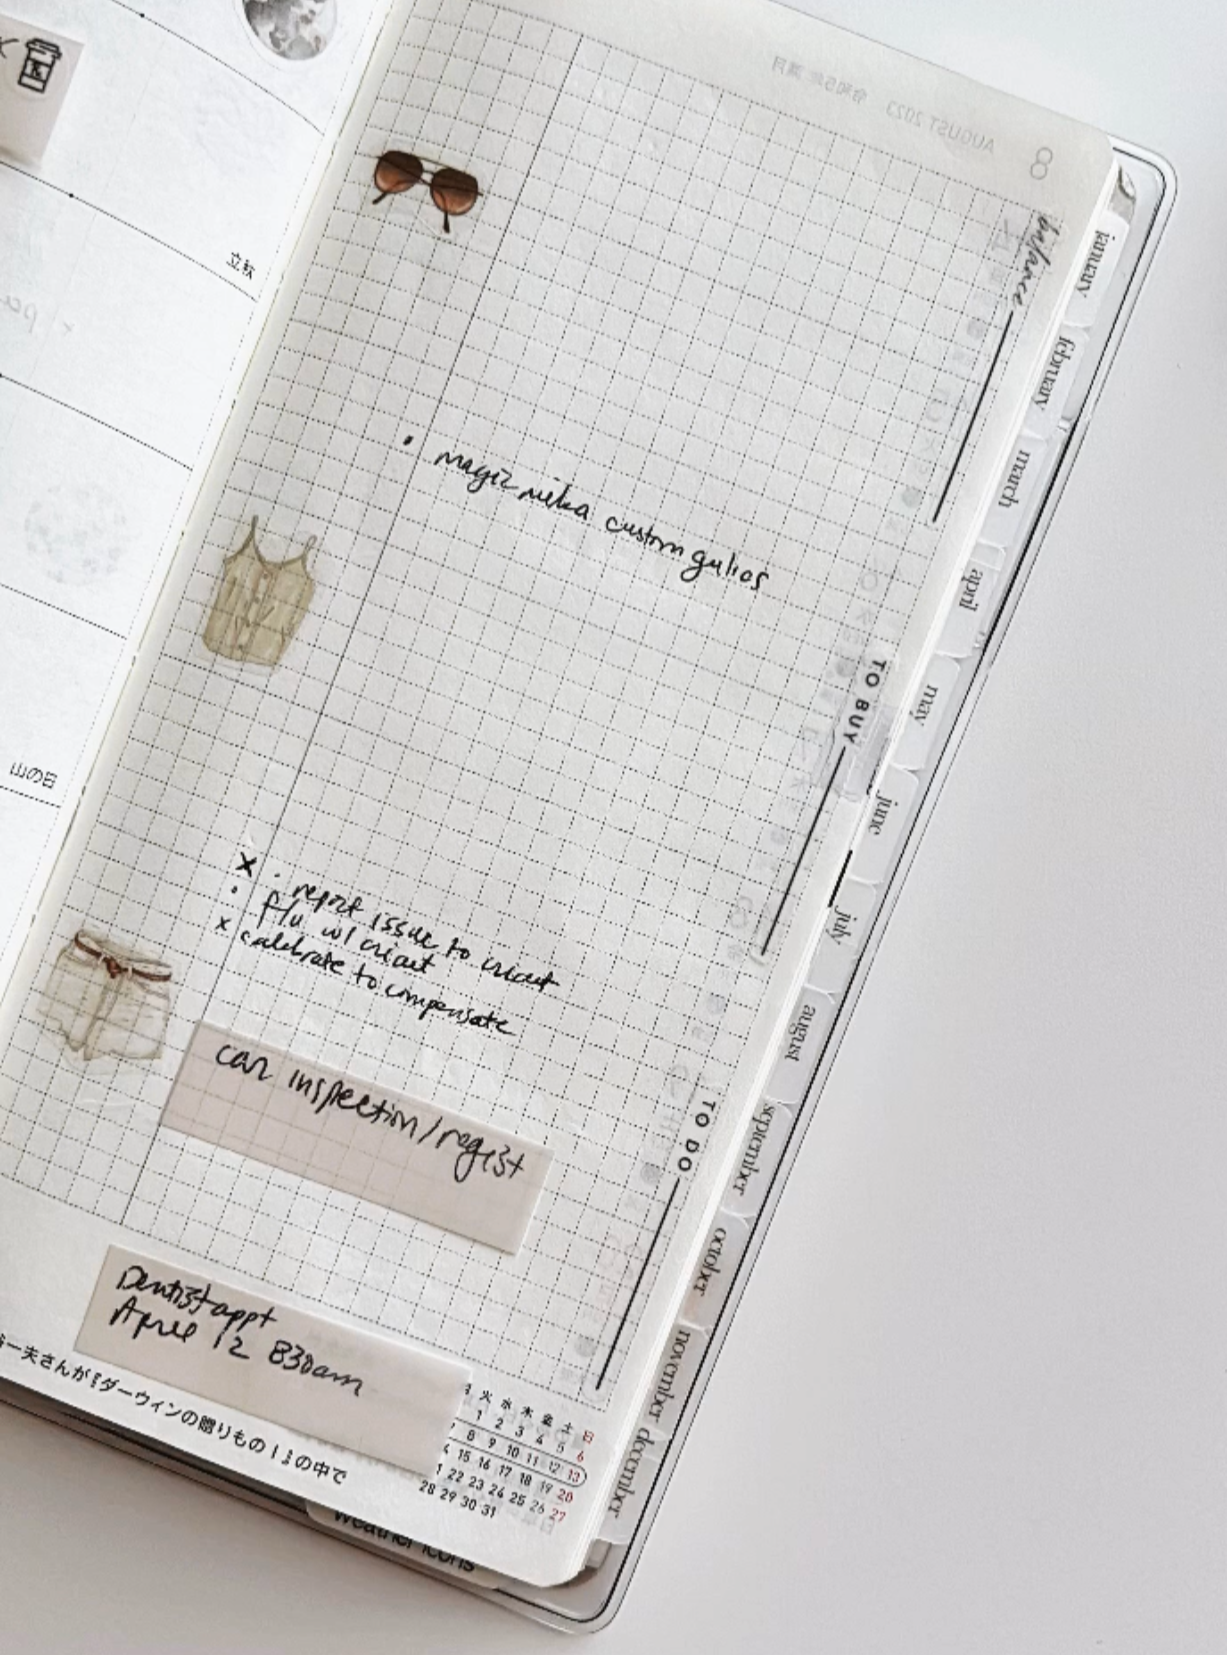 8
AUGUST 2023 令和5年 葉月
balance
立秋
山の日
TO BUY
TO DO
custom
x · report issue to cricut
· f/u w/ cricut
x calibrate to compensate
car inspection/regist
Dentist appt
April 12 830am
さんが『ダーウィンの贈りものI』の中で
火 水 木 金 土 日
1 2 3 4 5 6
8 9 10 11 12 13
15 16 17 18 19 20
22 23 24 25 26 27
28 29 30 31
january
february
march
april
may
june
july
august
september
october
november
december
weather icons